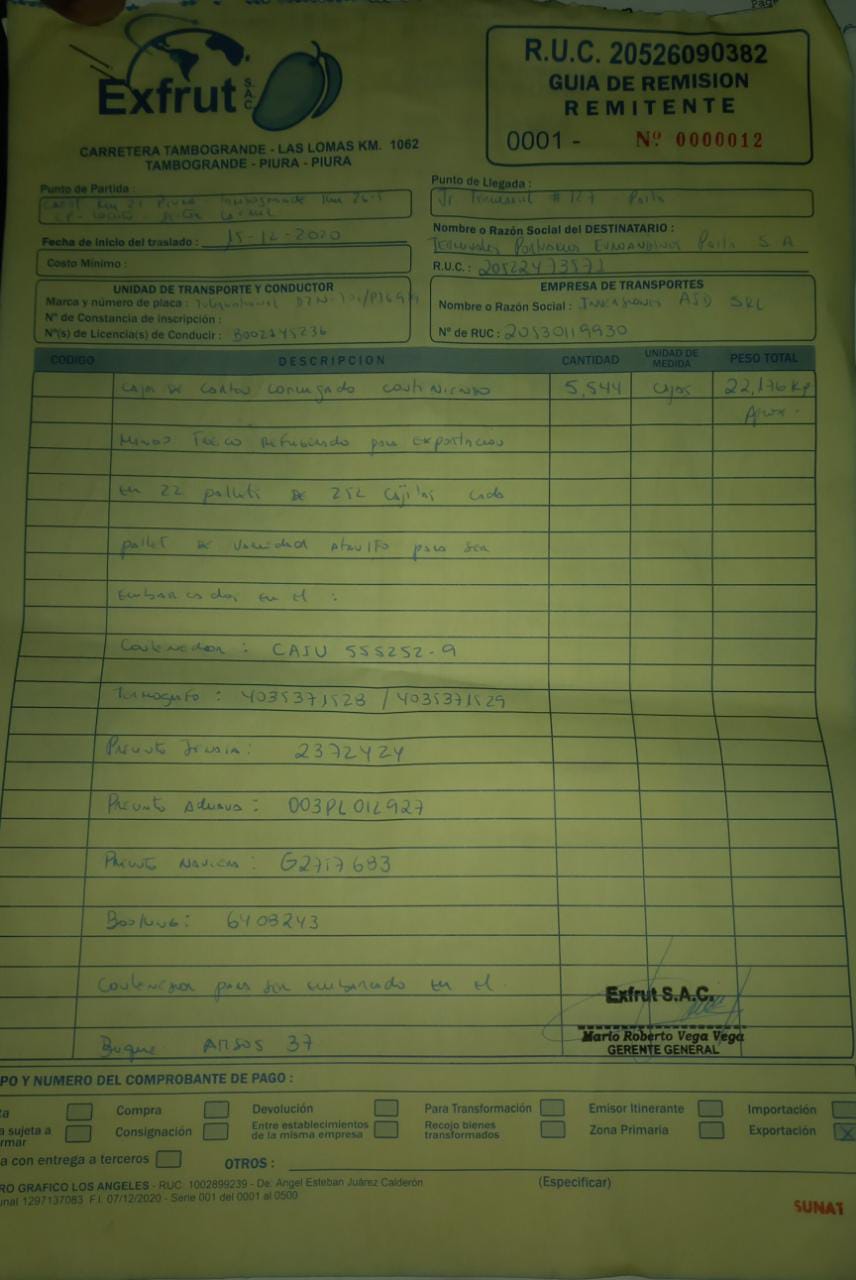 Exfrut S.A.C.
CARRETERA TAMBOGRANDE - LAS LOMAS KM. 1062
TAMBOGRANDE - PIURA - PIURA
R.U.C. 20526090382
GUIA DE REMISION
REMITENTE
0001 - Nº 0000012
Punto de Partida :
Punto de Llegada :
# 127 - Paita
Fecha de inicio del traslado : 15-12-2020
Costo Mínimo :
Nombre o Razón Social del DESTINATARIO :
Terminales Portuarios Euroandinos Paita S.A
R.U.C. : 20522473571
UNIDAD DE TRANSPORTE Y CONDUCTOR
Marca y número de placa :
Nº de Constancia de inscripción :
Nº(s) de Licencia(s) de Conducir : B002145236
EMPRESA DE TRANSPORTES
Nombre o Razón Social : Inversiones SRL
Nº de RUC : 20530119930
CODIGO DESCRIPCION CANTIDAD UNIDAD DE MEDIDA PESO TOTAL
Caja de Carton Corrugado conteniendo 5,544 Cajas 22,176 Kg
Aprox.
Refrigerado para Exportacion
en 22 pallets de 252 Cajitas cada
pallet de Variedad Ataulfo para ser
embarcados en el :
Contenedor : CAIU 555252-9
Termografo : 4035371528 / 4035371529
Precinto : 2372424
Precinto Aduana : 003PL012927
Precinto Naviera : G2717683
Booking : 6408243
Contenedor para ser embarcado en el
Buque ARSOS 37
Exfrut S.A.C.
Mario Roberto Vega Vega
GERENTE GENERAL
PO Y NUMERO DEL COMPROBANTE DE PAGO :
ta Compra Devolución Para Transformación Emisor Itinerante Importación
a sujeta a
rmar Consignación Entre establecimientos de la misma empresa Recojo bienes transformados Zona Primaria Exportación X
a con entrega a terceros OTROS :
(Especificar)
RO GRAFICO LOS ANGELES - RUC. 1002899239 - De. Angel Esteban Juárez Calderón
unal 1297137083 F.I. 07/12/2020 - Serie 001 del 0001 al 0500
SUNAT